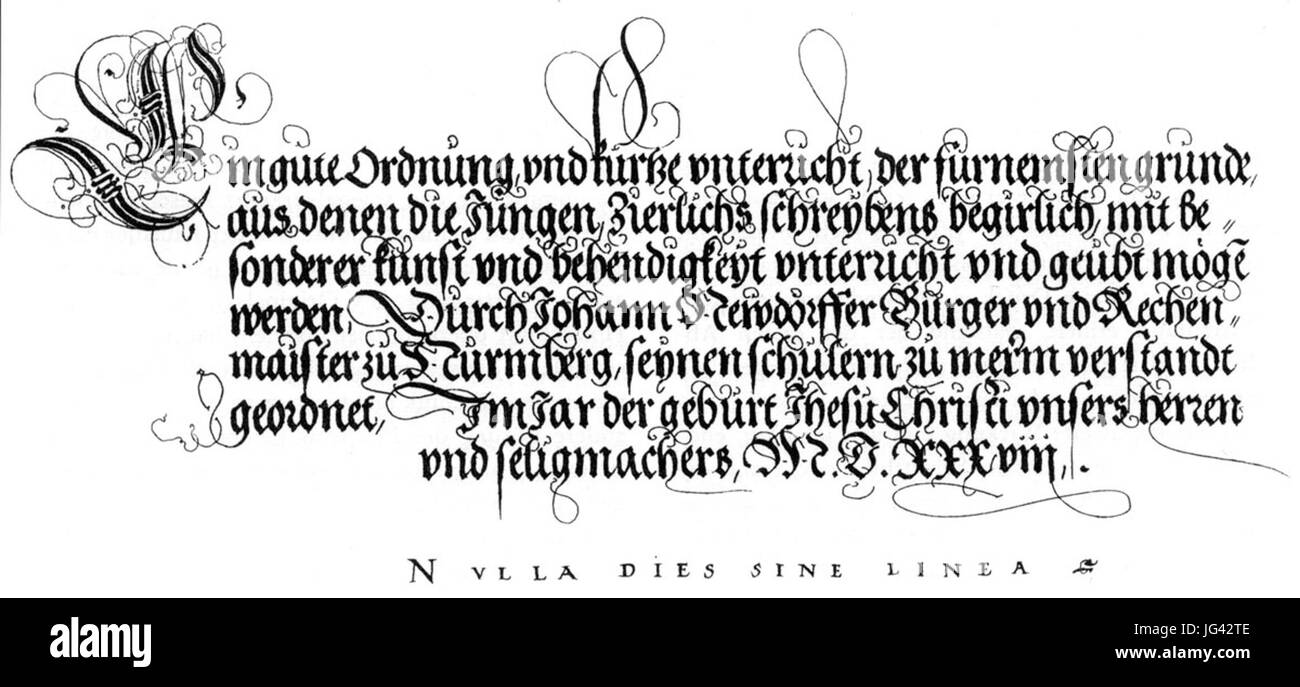 Ein gute Ordnung, vnd kurtze vnterricht, der furnemsten grunde,
aus denen die Jungen, Zierlichs schreybens begirlich, mit be=
sonderer kunst vnd behendigkeyt vnterricht vnd geubt mögē
werden, Durch Johann Newdörffer Burger vnd Rechen=
maister zu Nurmberg, seynen schulern zu merm verstandt
geordnet, Im Jar der geburt Jhesu Christi vnsers herren
vnd seligmachers, M. D. XXXviij, .
NVLLA DIES SINE LINEA
alamy stock photo
JG42TE
www.alamy.com